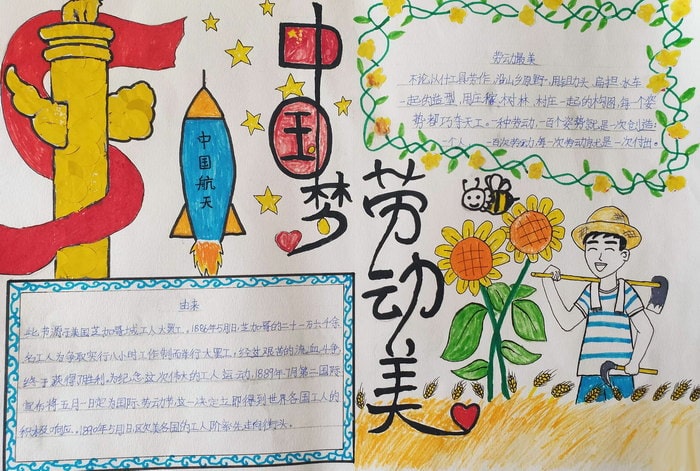 中国梦
中国航天
劳动美
劳动最美
不论从什工具劳作,沿山乡原野,用
一起的造型,用庄稼、树林、村庄一起的构图,每个姿
势都巧夺天工。一种劳动,一百个姿势就是一次创造;
一个人,一百次劳动,每一次劳动身就是一次付出。
由来
此节源于美国芝加哥城工人大罢工。1886年5月1日,芝加哥的二十一万六千余
名工人为争取实行八小时工作制而举行大罢工,经过艰苦的流血斗争
终于获得了胜利。为纪念这次伟大的工人运动,1889年7月第二国际
宣布将五月一日定为国际劳动节,这一决定立即得到世界各国工人的
积极响应。1890年5月1日,欧美各国的工人阶率先走向街头。